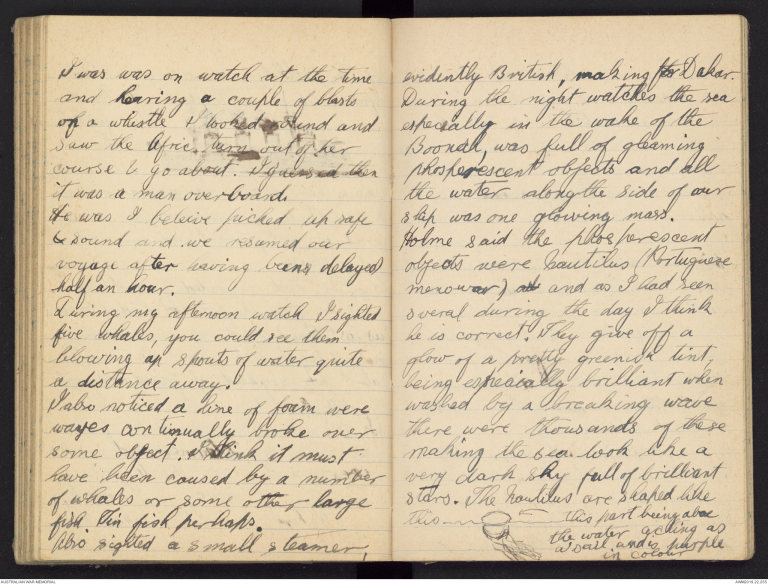 I was was on watch at the time
and hearing a couple of blasts
on a whistle I looked round and
saw the Afric turn out of her
course & go about. I guessed then
it was a man overboard.
He was I beleive picked up safe
& sound and we resumed our
voyage after having been delayed
half an hour.
During my afternoon watch I sighted
five whales, you could see them
blowing up spouts of water quite
a distance away.
I also noticed a line of foam were
waves continually broke over
some object. I think it must
have been caused by a number
of whales or some other large
fish. Fin fish perhaps.
Also sighted a small steamer,
evidently British, making for Dakar.
During the night watches the sea
especially in the wake of the
Boonah, was full of gleaming
phosperescent objects and all
the water along the side of our
ship was one glowing mass.
Holme said the phosperescent
objects were nautilus (Portuguese
menowar) and as I had seen
several during the day I think
he is correct. They give off a
glow of a pretty greenish tint,
being espeacially brilliant when
washed by a breaking wave
there were thousands of these
making the sea look like a
very dark sky full of brilliant
stars. The nautilus are shaped like
this this part being above
the water acting as
a sail and is purple
in colour
AUSTRALIAN WAR MEMORIAL